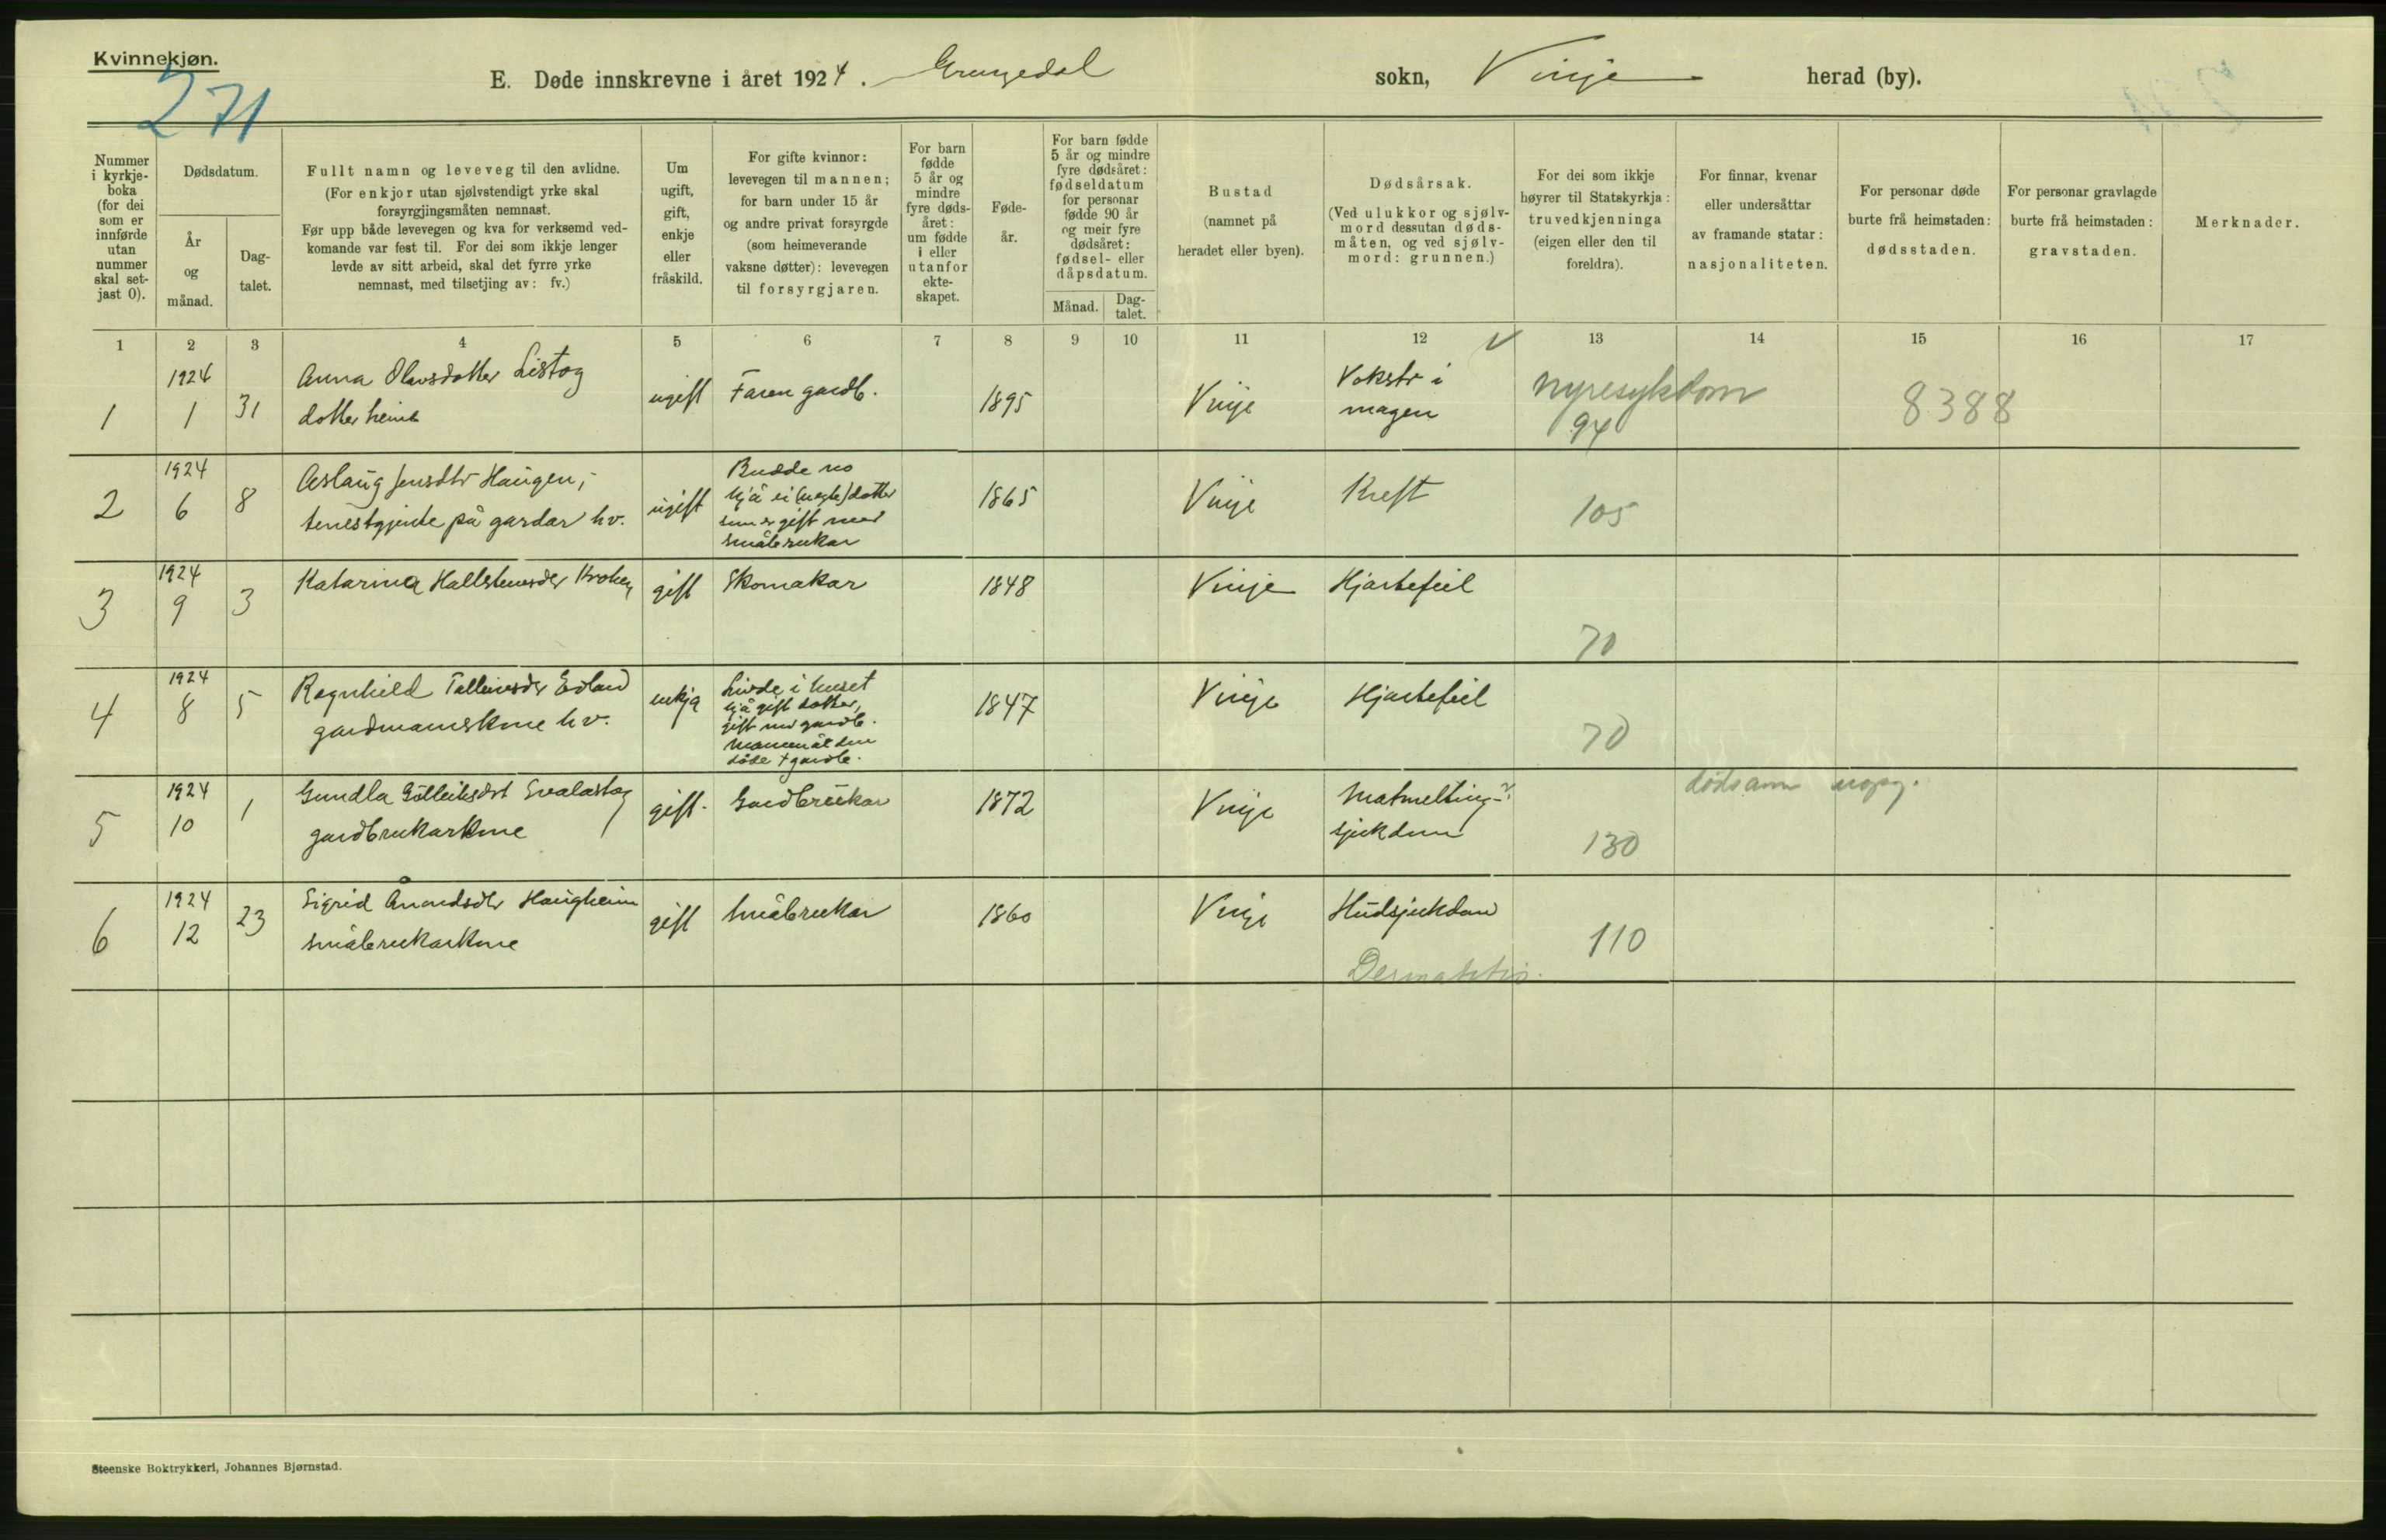 Kvinnekjøn.
271
E. Døde innskrevne i året 1924. Grungedal sokn, Vinje herad (by).
Nummer i kyrkje- boka (for dei som er innførde utan nummer skal set- jast 0).
Dødsdatum.
År og månad.
Dag- talet.
Fullt namn og leveveg til den avlidne.
(For enkjor utan sjølvstendigt yrke skal
forsyrgjingsmåten nemnast.
Før upp både levevegen og kva for verksemd ved-
komande var fest til. For dei som ikkje lenger
levde av sitt arbeid, skal det fyrre yrke
nemnast, med tilsetjing av: fv.)
Um ugift, gift, enkje eller fråskild.
For gifte kvinnor:
levevegen til mannen;
for barn under 15 år
og andre privat forsyrgde
(som heimeverande
vaksne døtter): levevegen
til forsyrgjaren.
For barn fødde 5 år og mindre fyre døds- året: um fødde i eller utanfor ekte- skapet.
Føde- år.
For barn fødde
5 år og mindre
fyre dødsåret:
fødseldatum
for personar
fødde 90 år
og meir fyre
dødsåret:
fødsel- eller
dåpsdatum.
Månad.
Dag- talet.
Bustad
(namnet på
heradet eller byen).
Dødsårsak.
(Ved ulukkor og sjølv-
mord dessutan døds-
måten, og ved sjølv-
mord: grunnen.)
For dei som ikkje
høyrer til Statskyrkja:
truvedkjenninga
(eigen eller den til
foreldra).
For finnar, kvenar
eller undersåttar
av framande statar:
nasjonaliteten.
For personar døde
burte frå heimstaden:
dødsstaden.
For personar gravlagde
burte frå heimstaden:
gravstaden.
Merknader.
1 2 3 4 5 6 7 8 9 10 11 12 13 14 15 16 17
1 1924 1 31 Anna Olavsdotter Listog
dotter heime
ugift Faren gardb. 1895 Vinje
Vokstr i
magen
nyresykdom
94
8388
2 1924 6 8 Aslaug Jensdtr Haugen,
tenestgjente på gardar hv.
ugift
Budde no
hjå ei (uegte) dotter
som er gift med
småbrukar
1865 Vinje Kreft 105
3 1924 9 3 Katarina Hallsteinsdr Kroken
gift Skomakar 1848 Vinje Hjartefeil 70
4 1924 8 5 Ragnhild Talleivsdr Edland
gardmannskone hv.
enkja
Livde i huset
hjå gift dotter,
gift med gardb.
døde gardb.
1847 Vinje Hjartefeil 70
5 1924 10 1 Gundla Gölleiksdot Svalastog
gardbrukarkone
gift. Gardbrukar 1872 Vinje
Matmelting-
sjukdom
130
dødsann uopg.
6 1924 12 23 Sigrid Ånundsdtr Haugheim
småbrukarkone
gift Småbrukar 1860 Vinje Hudsjukdom 110
Dermatitis.
Steenske Boktrykkeri, Johannes Bjørnstad.